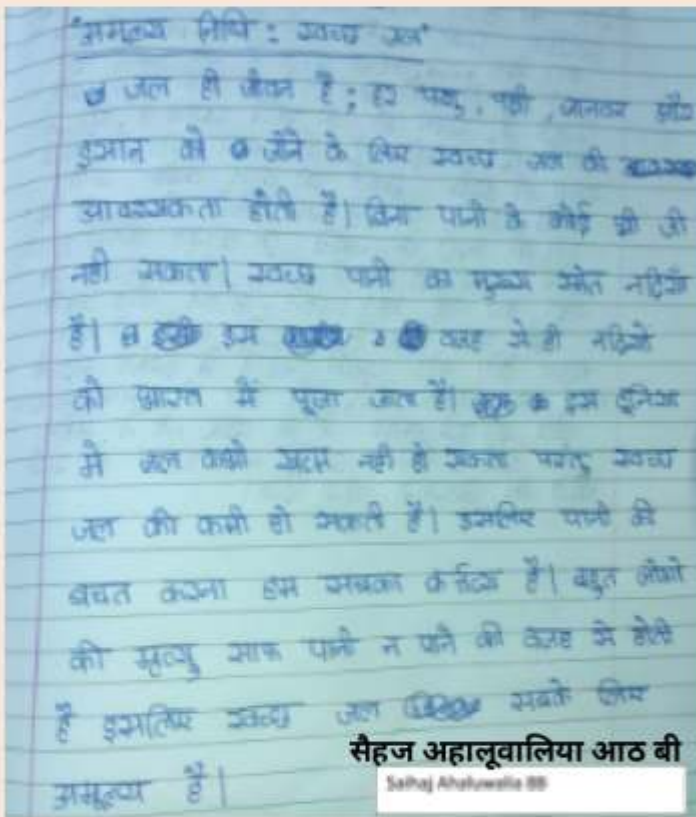 "अमूल्य निधि : स्वच्छ जल"
जल ही जीवन है ; हर पशु, पक्षी, जानवर और
इंसान को जीने के लिए स्वच्छ जल की
आवश्यकता होती है। बिना पानी के कोई भी जी
नही सकता। स्वच्छ पानी का मुख्य स्रोत नदियाँ
है। इस वजह से ही नदियों
को भारत में पूजा जाता है। इस दुनिया
में जल कभी खत्म नही हो सकता परंतु स्वच्छ
जल की कमी हो सकती है। इसलिए पानी की
बचत करना हम सबका कर्तव्य है। बहुत लोगो
की मृत्यु साफ पानी न पाने की वजह से होती
है इसलिए स्वच्छ जल सबके लिए
अमूल्य है।
सैहज अहालूवालिया आठ बी
Saihaj Ahaluwalia 8B